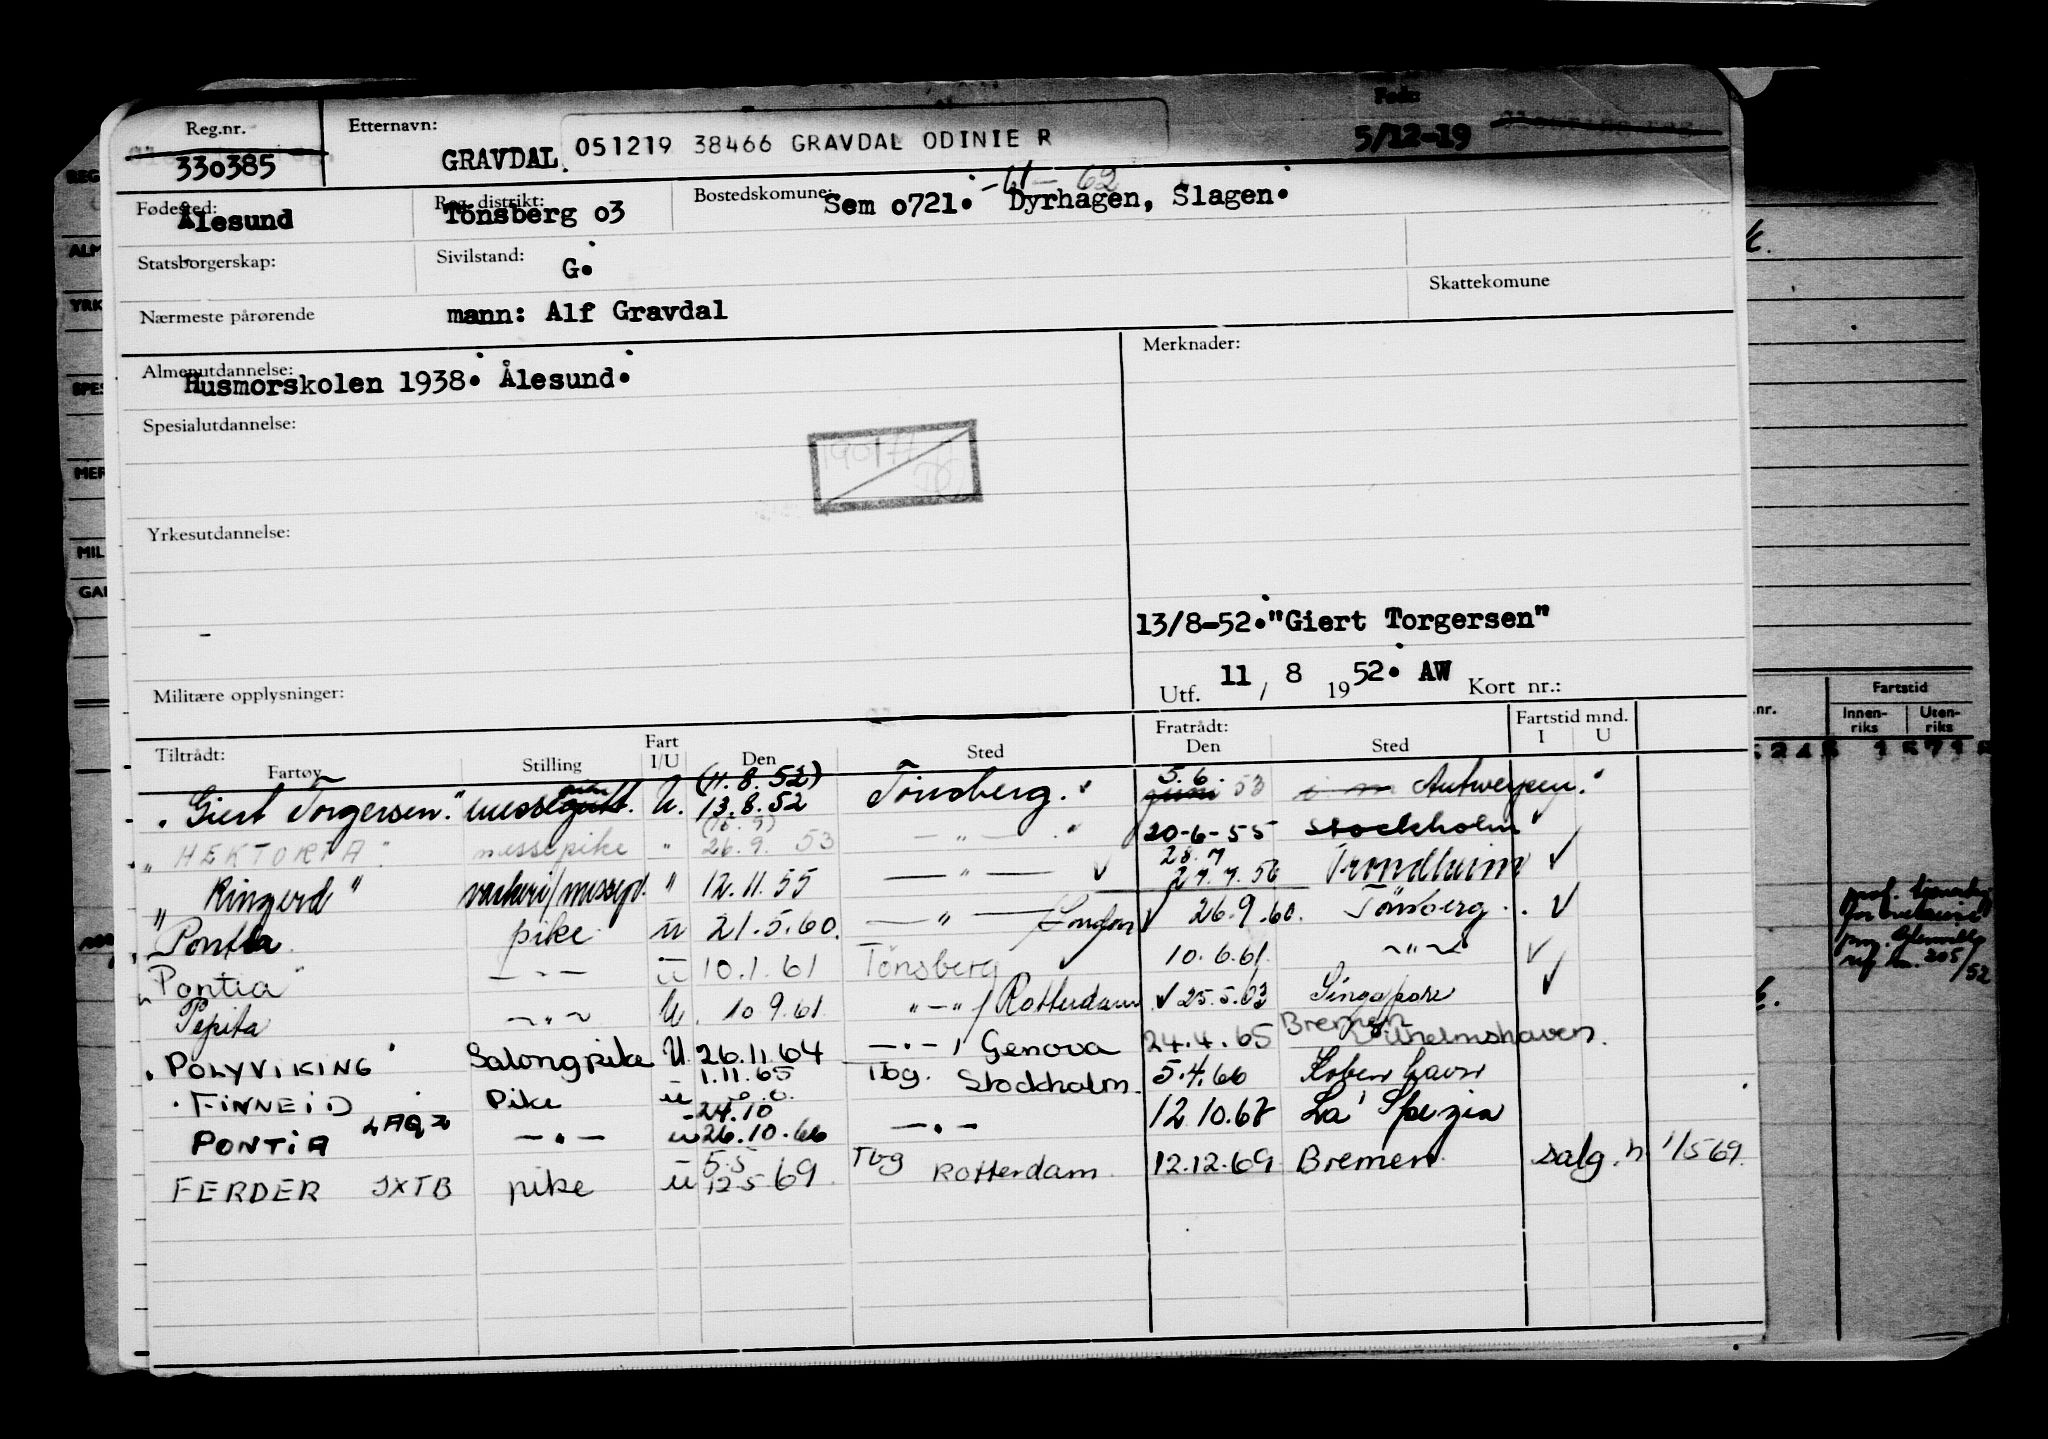 Reg.nr. Etternavn: Født:
330385 GRAVDAL 051219 38466 GRAVDAL ODINIE R 5/12-19
Fødested: Reg. distrikt: Bostedskomune: -61- 62
Ålesund Tönsberg o3 Sem o721. Dyrhagen, Slagen.
Statsborgerskap: Sivilstand: G. Skattekomune
Nærmeste pårørende mann: Alf Gravdal
Almenutdannelse: Merknader:
Husmorskolen 1938. Ålesund.
Spesialutdannelse:
Yrkesutdannelse:
13/8-52."Giert Torgersen"
Utf. 11 / 8 1952. AW Kort nr.:
Militære opplysninger:
Tiltrådt: Fart Fratrådt: Fartstid mnd.
Fartøy Stilling I/U Den Sted Den Sted I U
(11.8.52) 5.6.
"Giert Torgersen." U. 13.8.52 Tönsberg. 53 Antwerpen.
"HEKTORIA". messepike " 26.9. 53 — " — 20-6-55 Stockholm
28.7
"Ringerd" " 12.11.55 — " — 27.7.56 Trondheim
Pontia pike u 21.5.60. — " — /London 26.9.60. Tönsberg.
"Pontia" — " — u 10.1.61 Tönsberg 10.6.61. ~ " ~
"Pepita ~ " ~ U. 10 9.61 " — " / Rotterdam 25.5.63 Singapore
POLYVIKING Salongpike U. 26.11.64 — " — , Genova 24.4.65 Bremen Wilhelmshaven.
FINNEID Pike u 1.11.65 Tbg. Stockholm. 5.4.66 Köbenhavn
24.10
PONTIA LAQZ — " — u 26.10.66 — " — 12 10.67 La Spezia
5.5
FERDER JXTB pike u 12.5 69. Tbg Rotterdam 12.12.69 Bremen salg. n 1/5 69.
Fartstid
Innen-riks Uten-riks